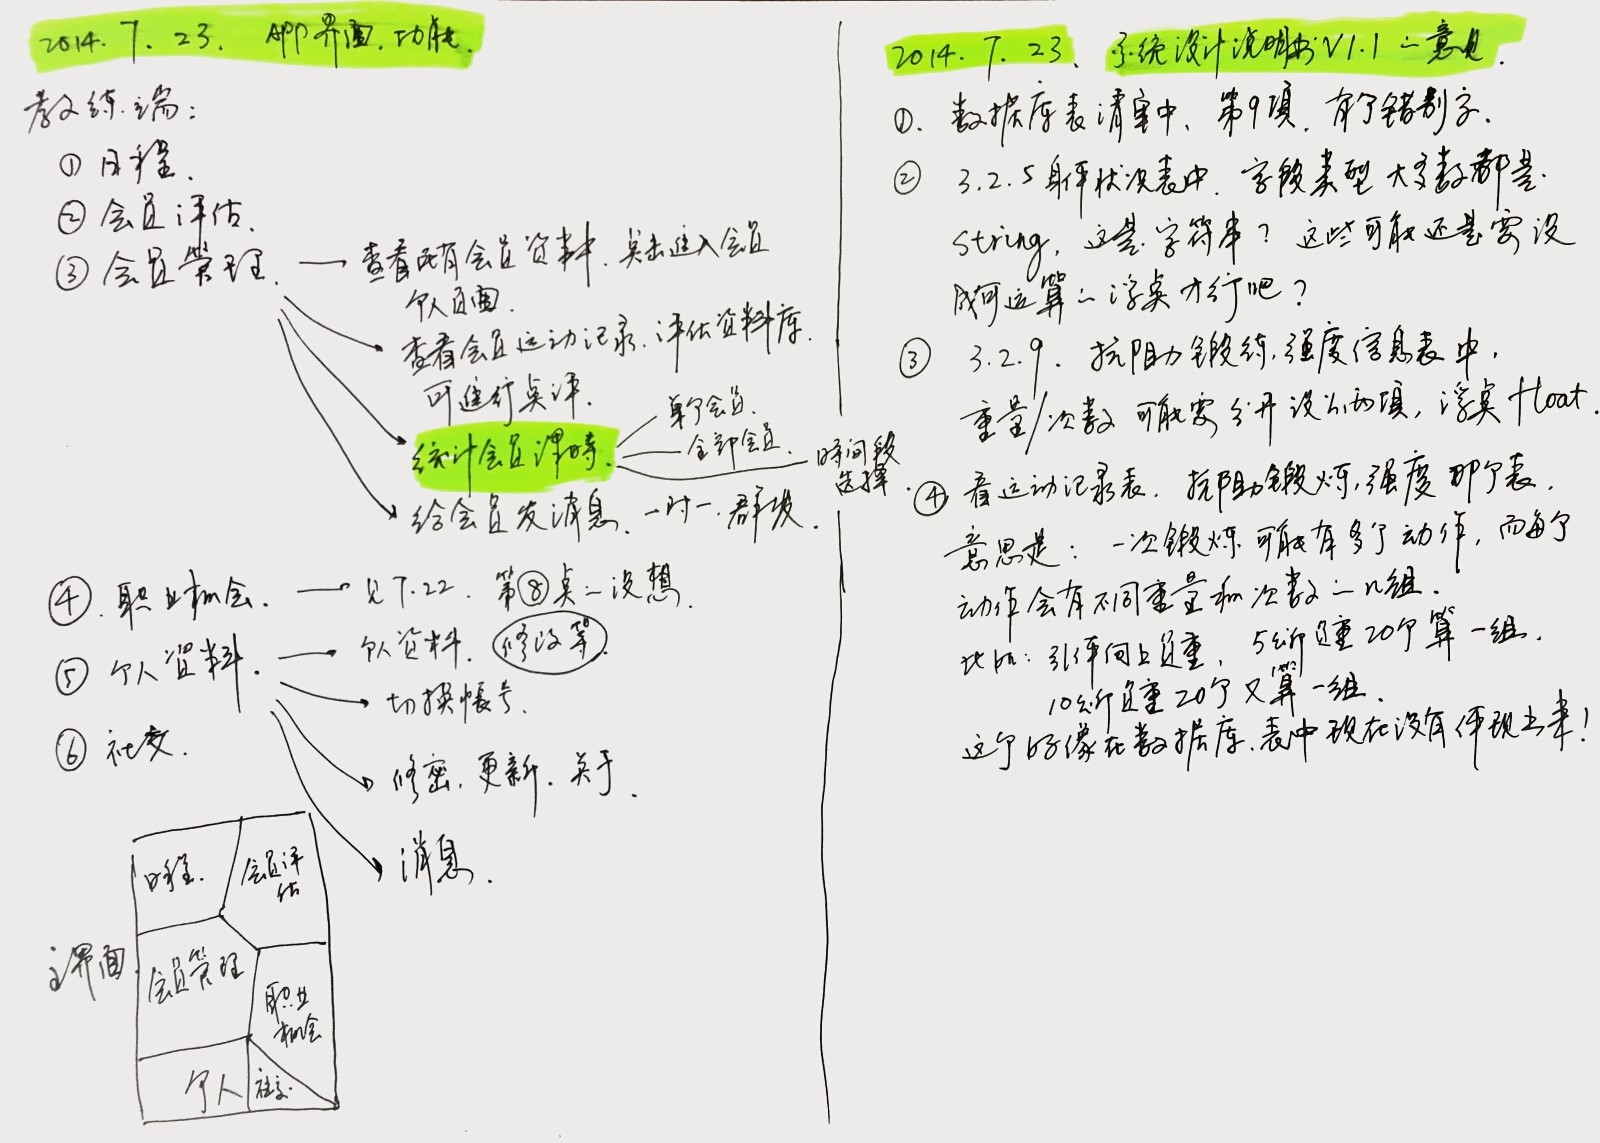 2014. 7. 23. APP界面、功能.
教练端:
① 日程.
② 会员评估.
③ 会员管理. — 查看所有会员资料, 点击进入会员
个人页面.
查看会员运动记录、评估资料库.
可进行点评.
统计会员课时.
单个会员.
全部会员.
时间段
选择.
给会员发消息、一对一、群发.
④. 职业机会. — 见7.22. 第⑧点一设想.
⑤ 个人资料. — 个人资料. 修改等
切换帐号.
⑥ 社交.
修密. 更新. 关于.
消息.
主界面.
日程.
会员评
估
会员管理
职业
机会
个人
社交.
2014. 7. 23、系统设计说明书V1.1 一意见.
①. 数据库表清单中、第9項. 有个错别字.
② 3.2.5 身体状况表中. 字段类型大多数都是.
string, 这是字符串? 这些可能还是要设
成可运算一浮点才行吧?
③ 3.2.9. 抗阻力锻炼,强度信息表中,
重量/次数 可能要分开设为两項, 浮点 float.
④ 看运动记录表. 抗阻力锻炼,强度那个表.
意思是: 一次锻炼可能有多个动作, 而每个
动作会有不同重量和次数一几组.
比如: 引体向上负重, 5公斤负重20个算一组.
10公斤负重20个又算一组.
这个好像在数据库、表中现在没有体现出来!